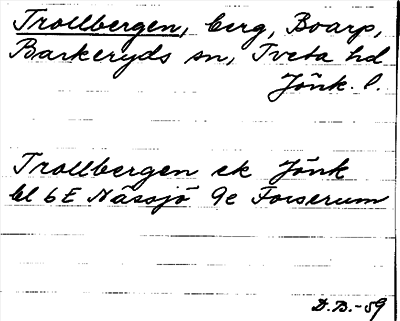 Trollbergen, berg, Boarp,
Barkeryds sn, Tveta hd
Jönk. l.
Trollbergen ek Jönk
bl 6E Nässjö 9e Forserum
D.B.-59